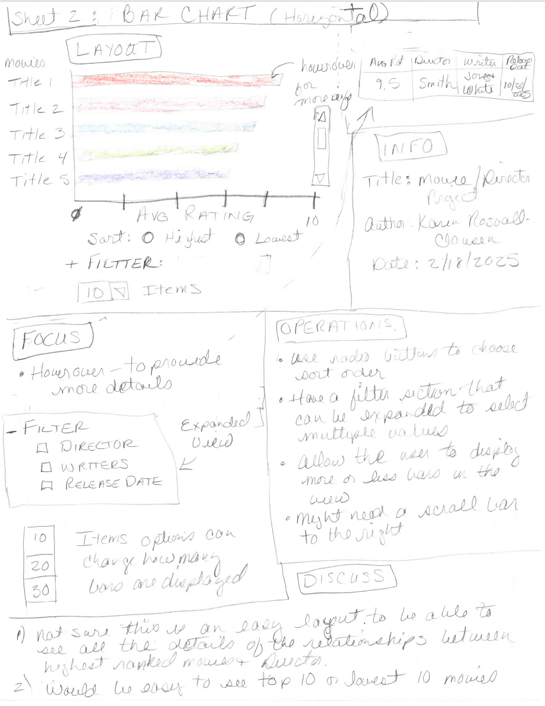 Sheet 2: BAR CHART (Horizontal)
LAYOUT
movies
Title 1
Title 2
Title 3
Title 4
Title 5
hoverover
for
more info
Avg Rtd Director Writer Release Date
9.5 Smith Jones White 10/20/2025
0 AVG RATING 10
Sort: O Highest O Lowest
+ FILTTER:
10 Items
INFO
Title: movie/Director
Project
Author: Karen Roswall-
Clausen
Date: 2/18/2025
FOCUS
• Hoverover - to provide
more details
- FILTER
DIRECTOR
WRITERS
RELEASE DATE
Expanded
View
10
20
30
Items options can
change how many
bars are displayed
OPERATIONS.
• use radio buttons to choose
sort order
• Have a filter section that
can be expanded to select
multiple values
• allow the user to display
more or less bars in the
view
• Might need a scroll bar
to the right
DISCUSS
1) not sure this is an easy layout to be able to
see all the details of the relationships between
highest ranked movies + Director.
2) Would be easy to see top 10 or lowest 10 movies